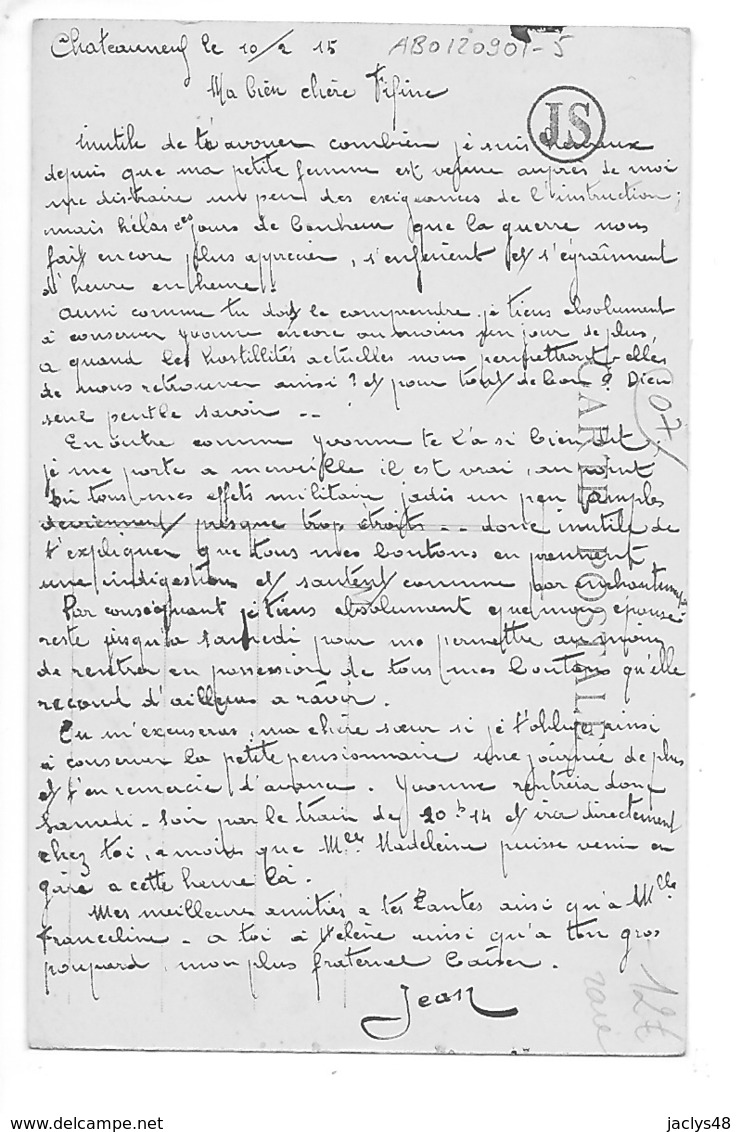 Chateauneuf le 10/2 15 AB0120901-5
Ma bien chère Fifine
JS
Inutile de t'avouer combien je suis heureux
depuis que ma petite femme est venue auprès de moi
me distraire un peu des exigeances de l'instruction;
mais hélas ces jours de bonheur que la guerre nous
fait encore plus apprecier, s'enfuient et s'égraînnent
d'heure en heure!
Aussi comme tu dois le comprendre je tiens absolument
à conserver Yvonne encore au moins un jour de plus
a quand les hostillités actuelles nous permettront-elles
de nous retrouver ainsi? et pour tout de bon? Dieu
seul peut le savoir --
En outre comme Yvonne te l'a si bien dit,
je me porte a merveille il est vrai, au point
où tous mes effets militaire jadis un peu amples
deviennent presque trop étroits -- donc inutile de
t'expliquer que tous mes boutons en prennent
une indigestion et sautent comme par enchantement
Par conséquant je tiens absolument que mon épouse
reste jusqu'a samedi pour me permettre au moins
de rentrer en possession de tous mes boutons qu'elle
recoud d'ailleurs a ravir.
Tu m'excuseras, ma chère sœur si je t'oblige ainsi
à conserver la petite pensionnaire une journée de plus
et t'en remercie d'avance. Yvonne rentrera donc
Samedi-soir par le train de 20h14 et ira directement
chez toi, a moins que Melle Madeleine puisse venir en
gare a cette heure là.
Mes meilleures amitiés a tes tantes ainsi qu'à Mlle
Franceline - a toi à Hélène ainsi qu'a ton gros
poupard, mon plus fraternel baiser.
Jean
CARTE POSTALE
(07)
12€
rare
delcampe.net
jaclys48